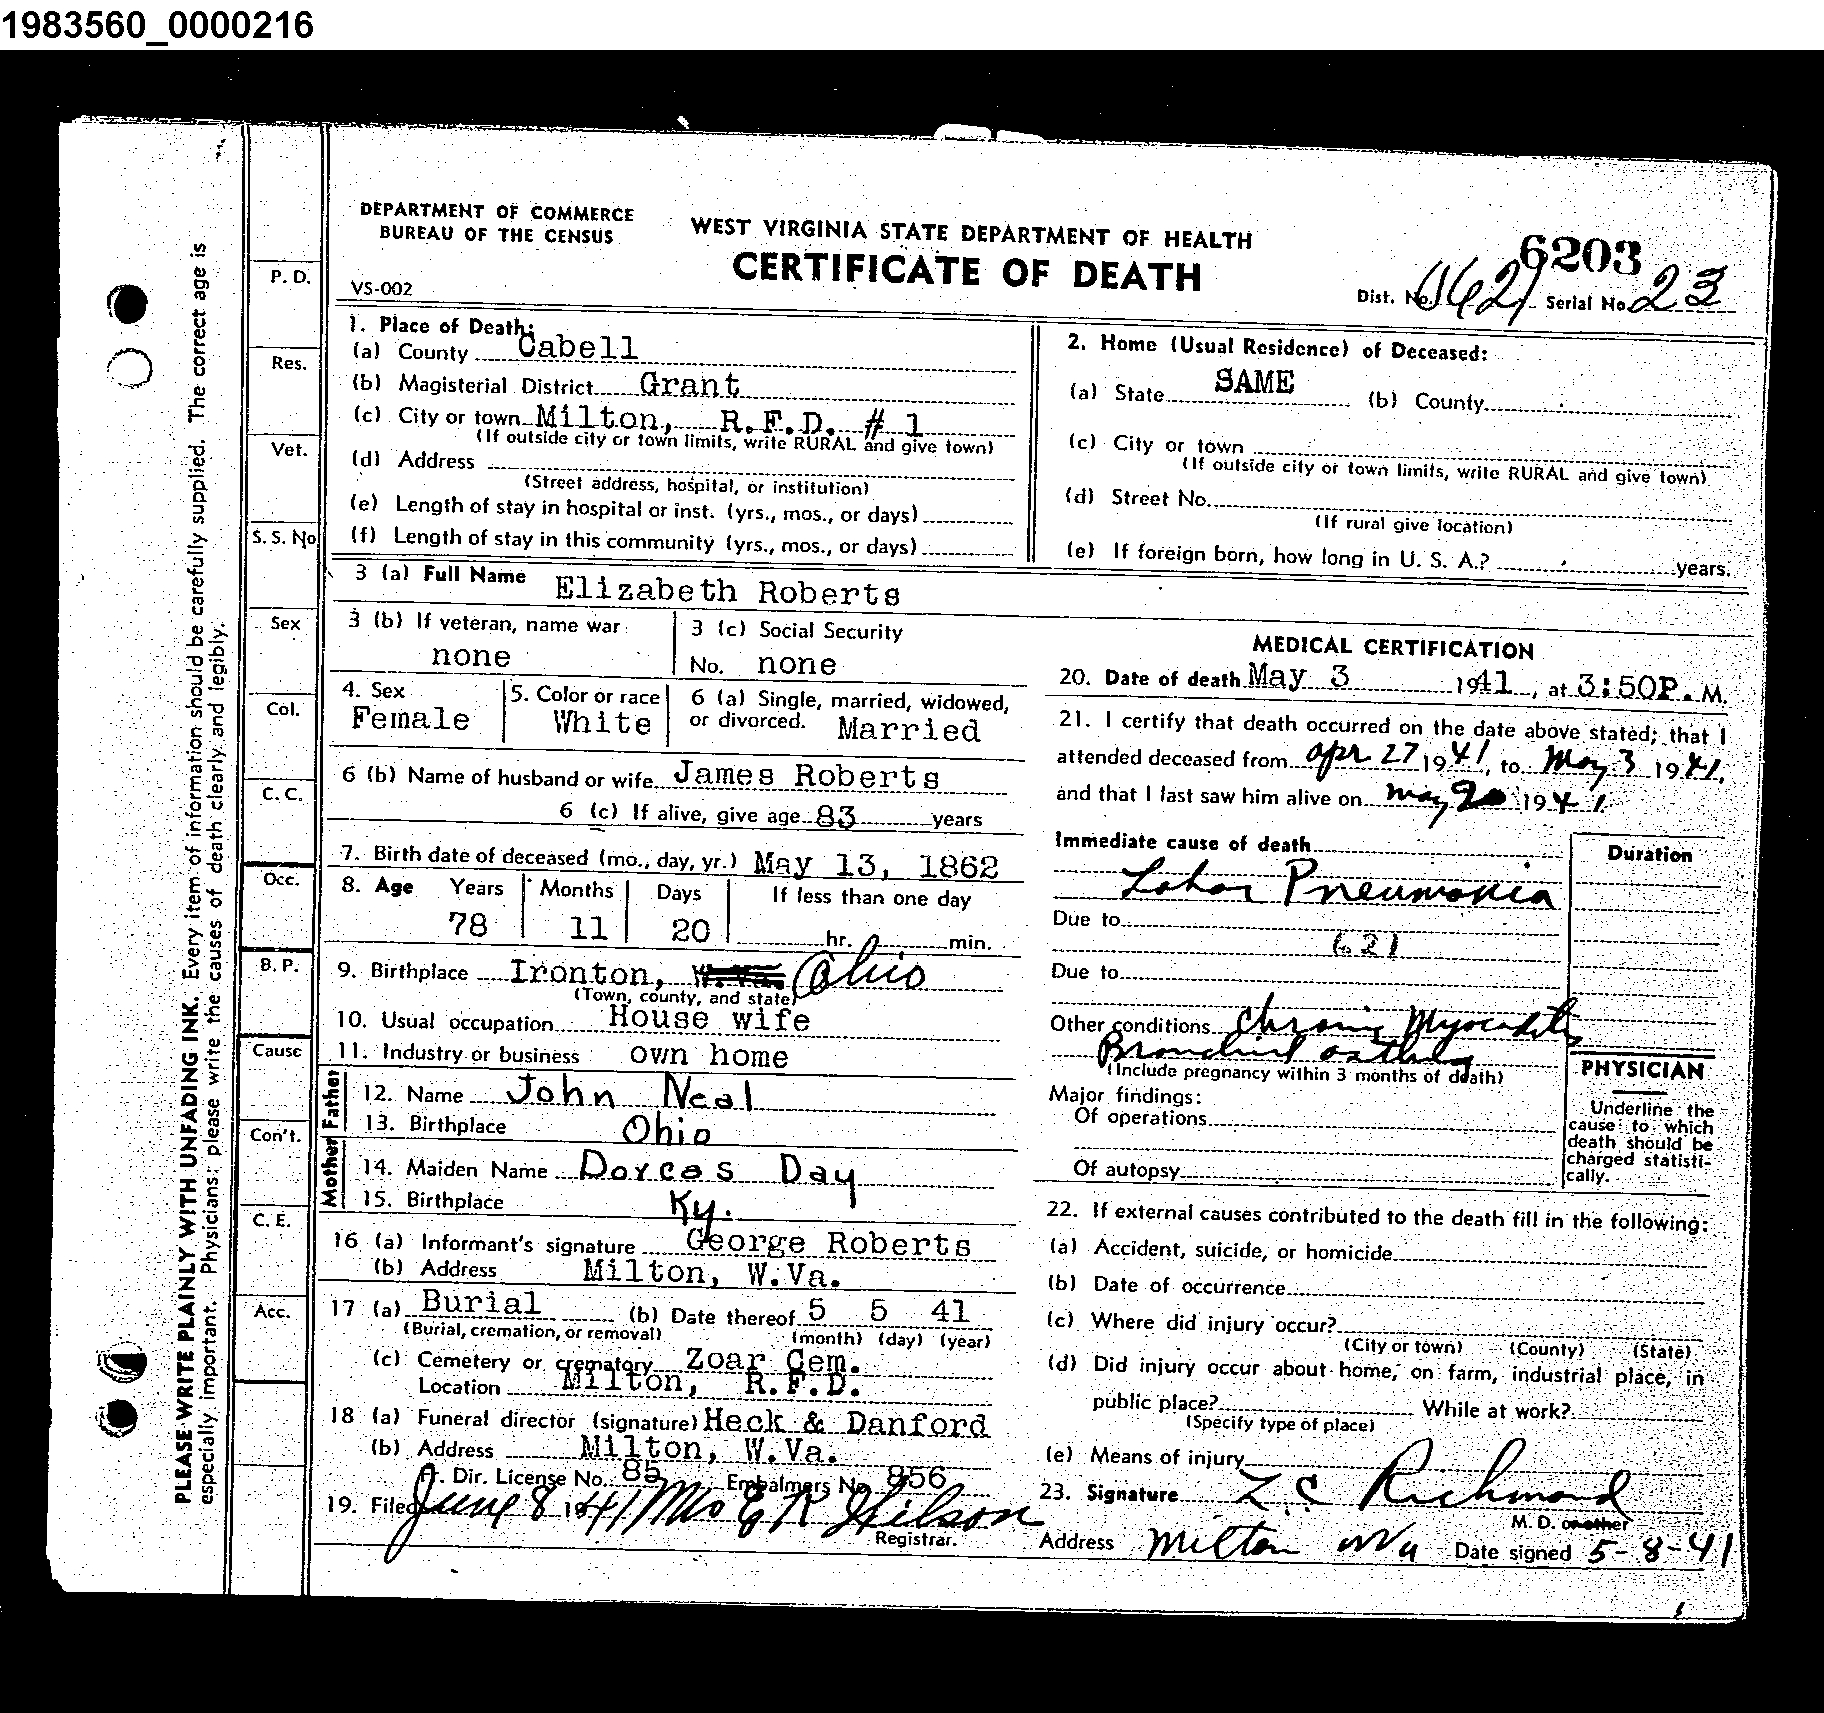 1983560_0000216
DEPARTMENT OF COMMERCE
BUREAU OF THE CENSUS
VS-002
WEST VIRGINIA STATE DEPARTMENT OF HEALTH
CERTIFICATE OF DEATH
6203
Dist. No. Serial No. 23
1. Place of Death:
(a) County Cabell
(b) Magisterial District Grant
(c) City or town Milton, R.F.D. # 1
(If outside city or town limits, write RURAL and give town)
(d) Address
(Street address, hospital, or institution)
(e) Length of stay in hospital or inst. (yrs., mos., or days)
(f) Length of stay in this community (yrs., mos., or days)
2. Home (Usual Residence) of Deceased:
(a) State SAME (b) County
(c) City or town
(If outside city or town limits, write RURAL and give town)
(d) Street No.
(If rural give location)
(e) If foreign born, how long in U. S. A.? years.
3 (a) Full Name Elizabeth Roberts
3 (b) If veteran, name war
none
3 (c) Social Security
No. none
4. Sex
Female
5. Color or race
White
6 (a) Single, married, widowed,
or divorced. Married
6 (b) Name of husband or wife James Roberts
6 (c) If alive, give age 83 years
7. Birth date of deceased (mo., day, yr.) May 13, 1862
8. Age Years Months Days If less than one day
78 11 20 hr. min.
9. Birthplace Ironton, W.Va. Ohio
(Town, county, and state)
10. Usual occupation House wife
11. Industry or business own home
Father
12. Name John Neal
13. Birthplace Ohio
Mother
14. Maiden Name Dorcas Day
15. Birthplace Ky.
16 (a) Informant's signature George Roberts
(b) Address Milton, W.Va.
17 (a) Burial (b) Date thereof 5 5 41
(Burial, cremation, or removal) (month) (day) (year)
(c) Cemetery or crematory Zoar Cem.
Location Milton, R.F.D.
18 (a) Funeral director (signature) Heck & Danford
(b) Address Milton, W.Va.
Fr. Dir. License No. 85 Embalmers No. 856
19. Filed June 8 1941 Mrs E R
Registrar.
MEDICAL CERTIFICATION
20. Date of death May 3 1941, at 3:50P.M.
21. I certify that death occurred on the date above stated; that I
attended deceased from Apr 27 1941, to May 3 1941,
and that I last saw him alive on May 1941.
Immediate cause of death
Duration
Lobar Pneumonia
Due to
621
Due to
Other conditions Chronic Myocarditis
Bronchial asthma
(Include pregnancy within 3 months of death)
Major findings:
Of operations
Of autopsy
PHYSICIAN
Underline the
cause to which
death should be
charged statisti-
cally.
22. If external causes contributed to the death fill in the following:
(a) Accident, suicide, or homicide
(b) Date of occurrence
(c) Where did injury occur?
(City or town) (County) (State)
(d) Did injury occur about home, on farm, industrial place, in
public place? While at work?
(Specify type of place)
(e) Means of injury
23. Signature L C Richmond
M. D. or other
Address Milton W Va Date signed 5-8-41
P. D.
Res.
Vet.
S. S. No
Sex
Col.
C. C.
Occ.
B. P.
Cause
Con't.
C. E.
Acc.
PLEASE WRITE PLAINLY WITH UNFADING INK. Every item of information should be carefully supplied. The correct age is
especially important. Physicians: please write the causes of death clearly and legibly.